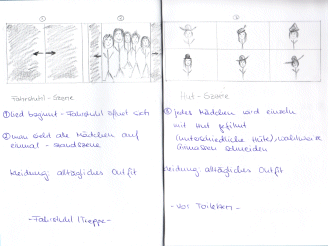 ① ②
Fahrstuhl-Szene
① Lied beginnt - Fahrstuhl öffnet sich
② man sieht alle Mädchen auf
einmal - Standszene
Kleidung alltägliches Outfit
- Fahrstuhl / Treppe -
③
Hut-Szene
③ jedes Mädchen wird einzeln
mit Hut gefilmt
(unterschiedliche Hüte)
Grimassen schneiden
Kleidung alltägliches Outfit
- vor Toiletten -